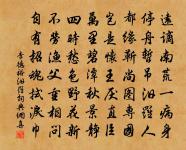 遠謫南荒一病身
停舟暫吊汨羅人
都緣靳尚圖專國
豈是懷王厭直臣
萬里碧潭秋景靜
四時愁色野花新
不勞漁父重相問
自有招魂拭淚巾
李德裕汨羅